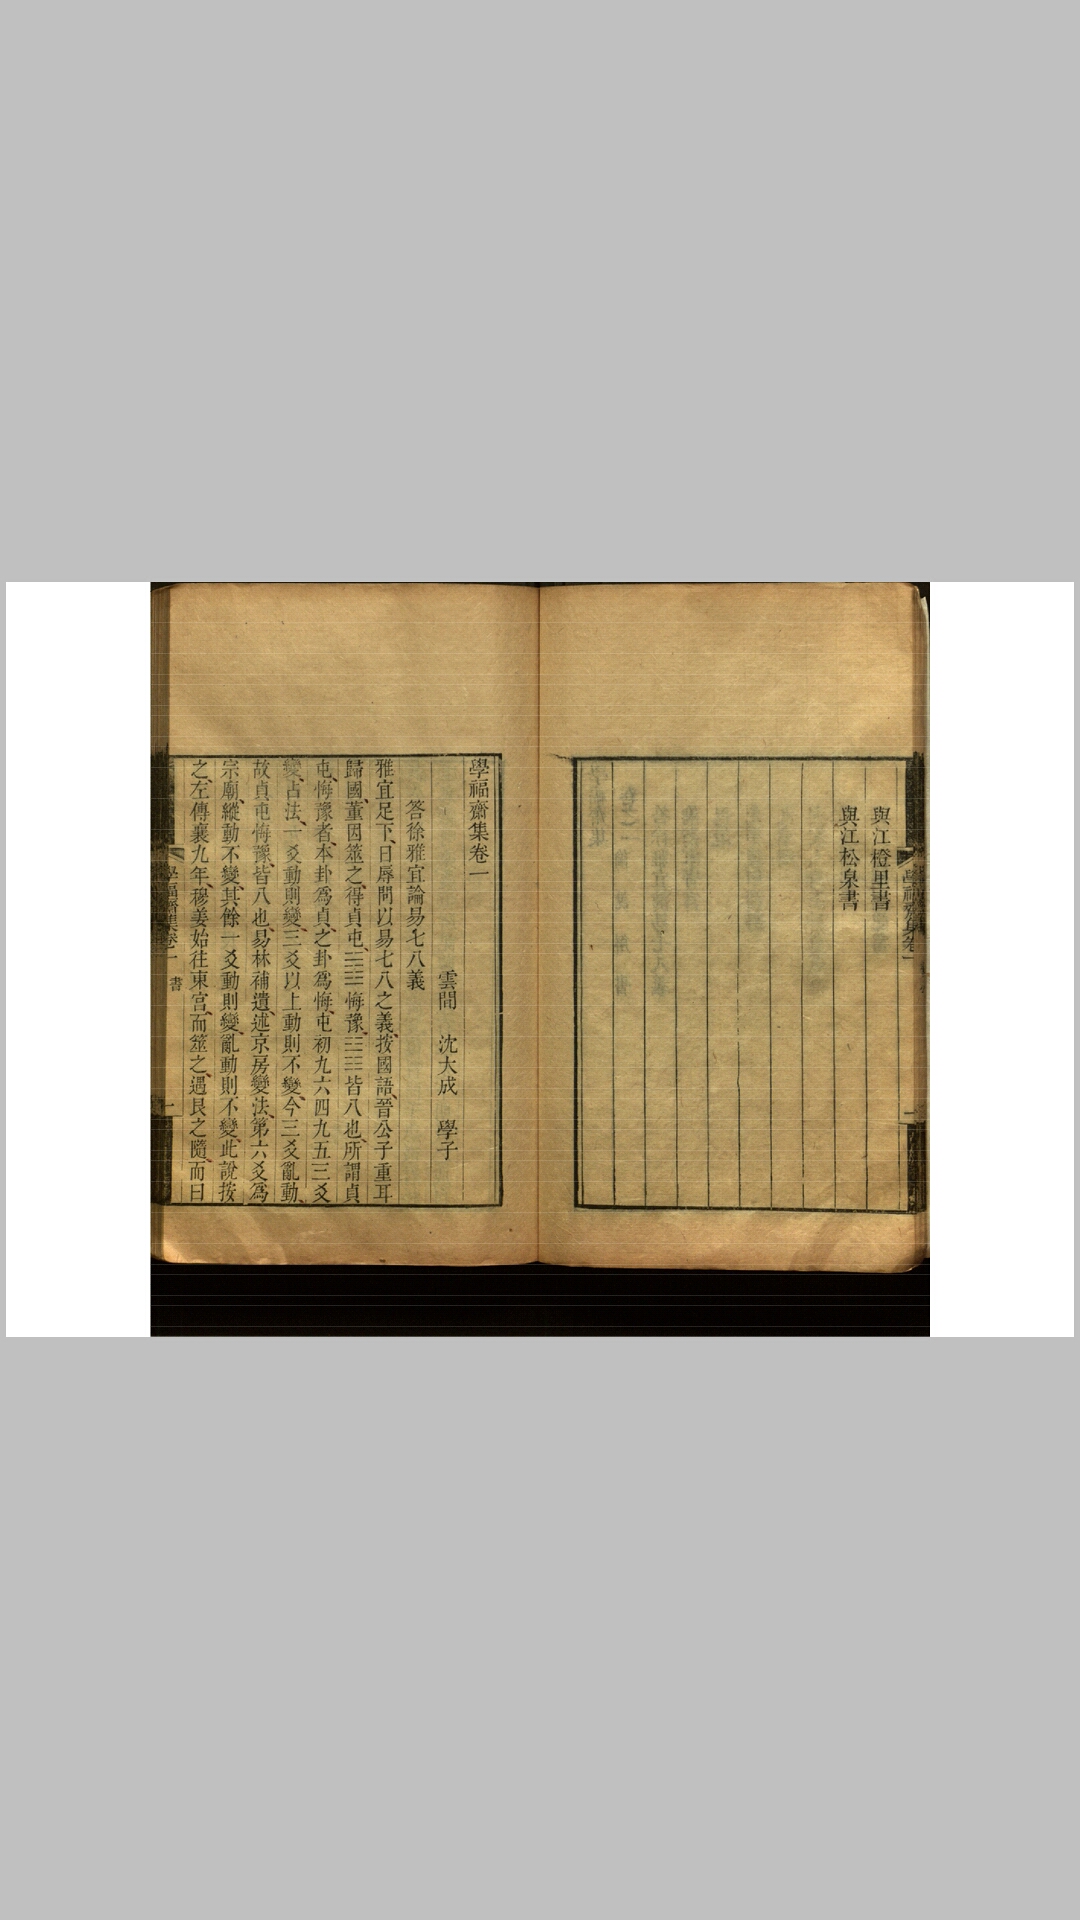 與江橙里書
與江松泉書
學福齋集卷一
雲間 沈大成 學子
答徐雅宜論易七八義
雅宜足下日辱問以易七八之義按國語晉公子重耳
歸國董因筮之得貞屯䷂悔豫䷏皆八也所謂貞
屯悔豫者本卦為貞之卦為悔屯初九六四九五三爻
變占法一爻動則變三爻以上動則不變今三爻亂動
故貞屯悔豫皆八也易林補遺述京房變法第六爻為
宗廟縱動不變其餘一爻動則變亂動則不變此說按
之左傳襄九年穆姜始往東宮而筮之遇艮之隨而曰
學福齋集卷一 書 一